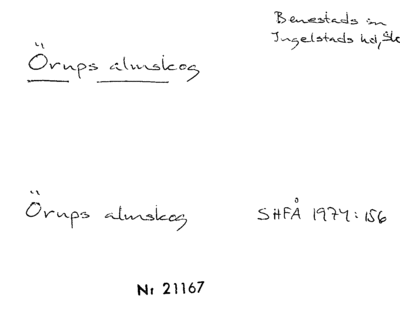 Benestads sn
Ingelstads hd, Sk
Örups almskog
Örups almskog SHFÅ 1974:156
Nr 21167